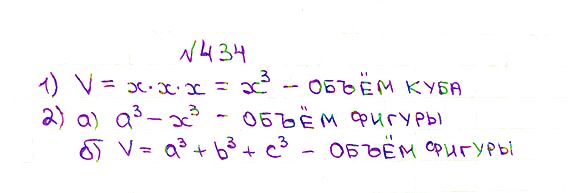 №434
1) V = x·x·x = x³ – ОБЪЁМ КУБА
2) а) a³ – x³ – ОБЪЁМ ФИГУРЫ
б) V = a³ + b³ + c³ – ОБЪЁМ ФИГУРЫ